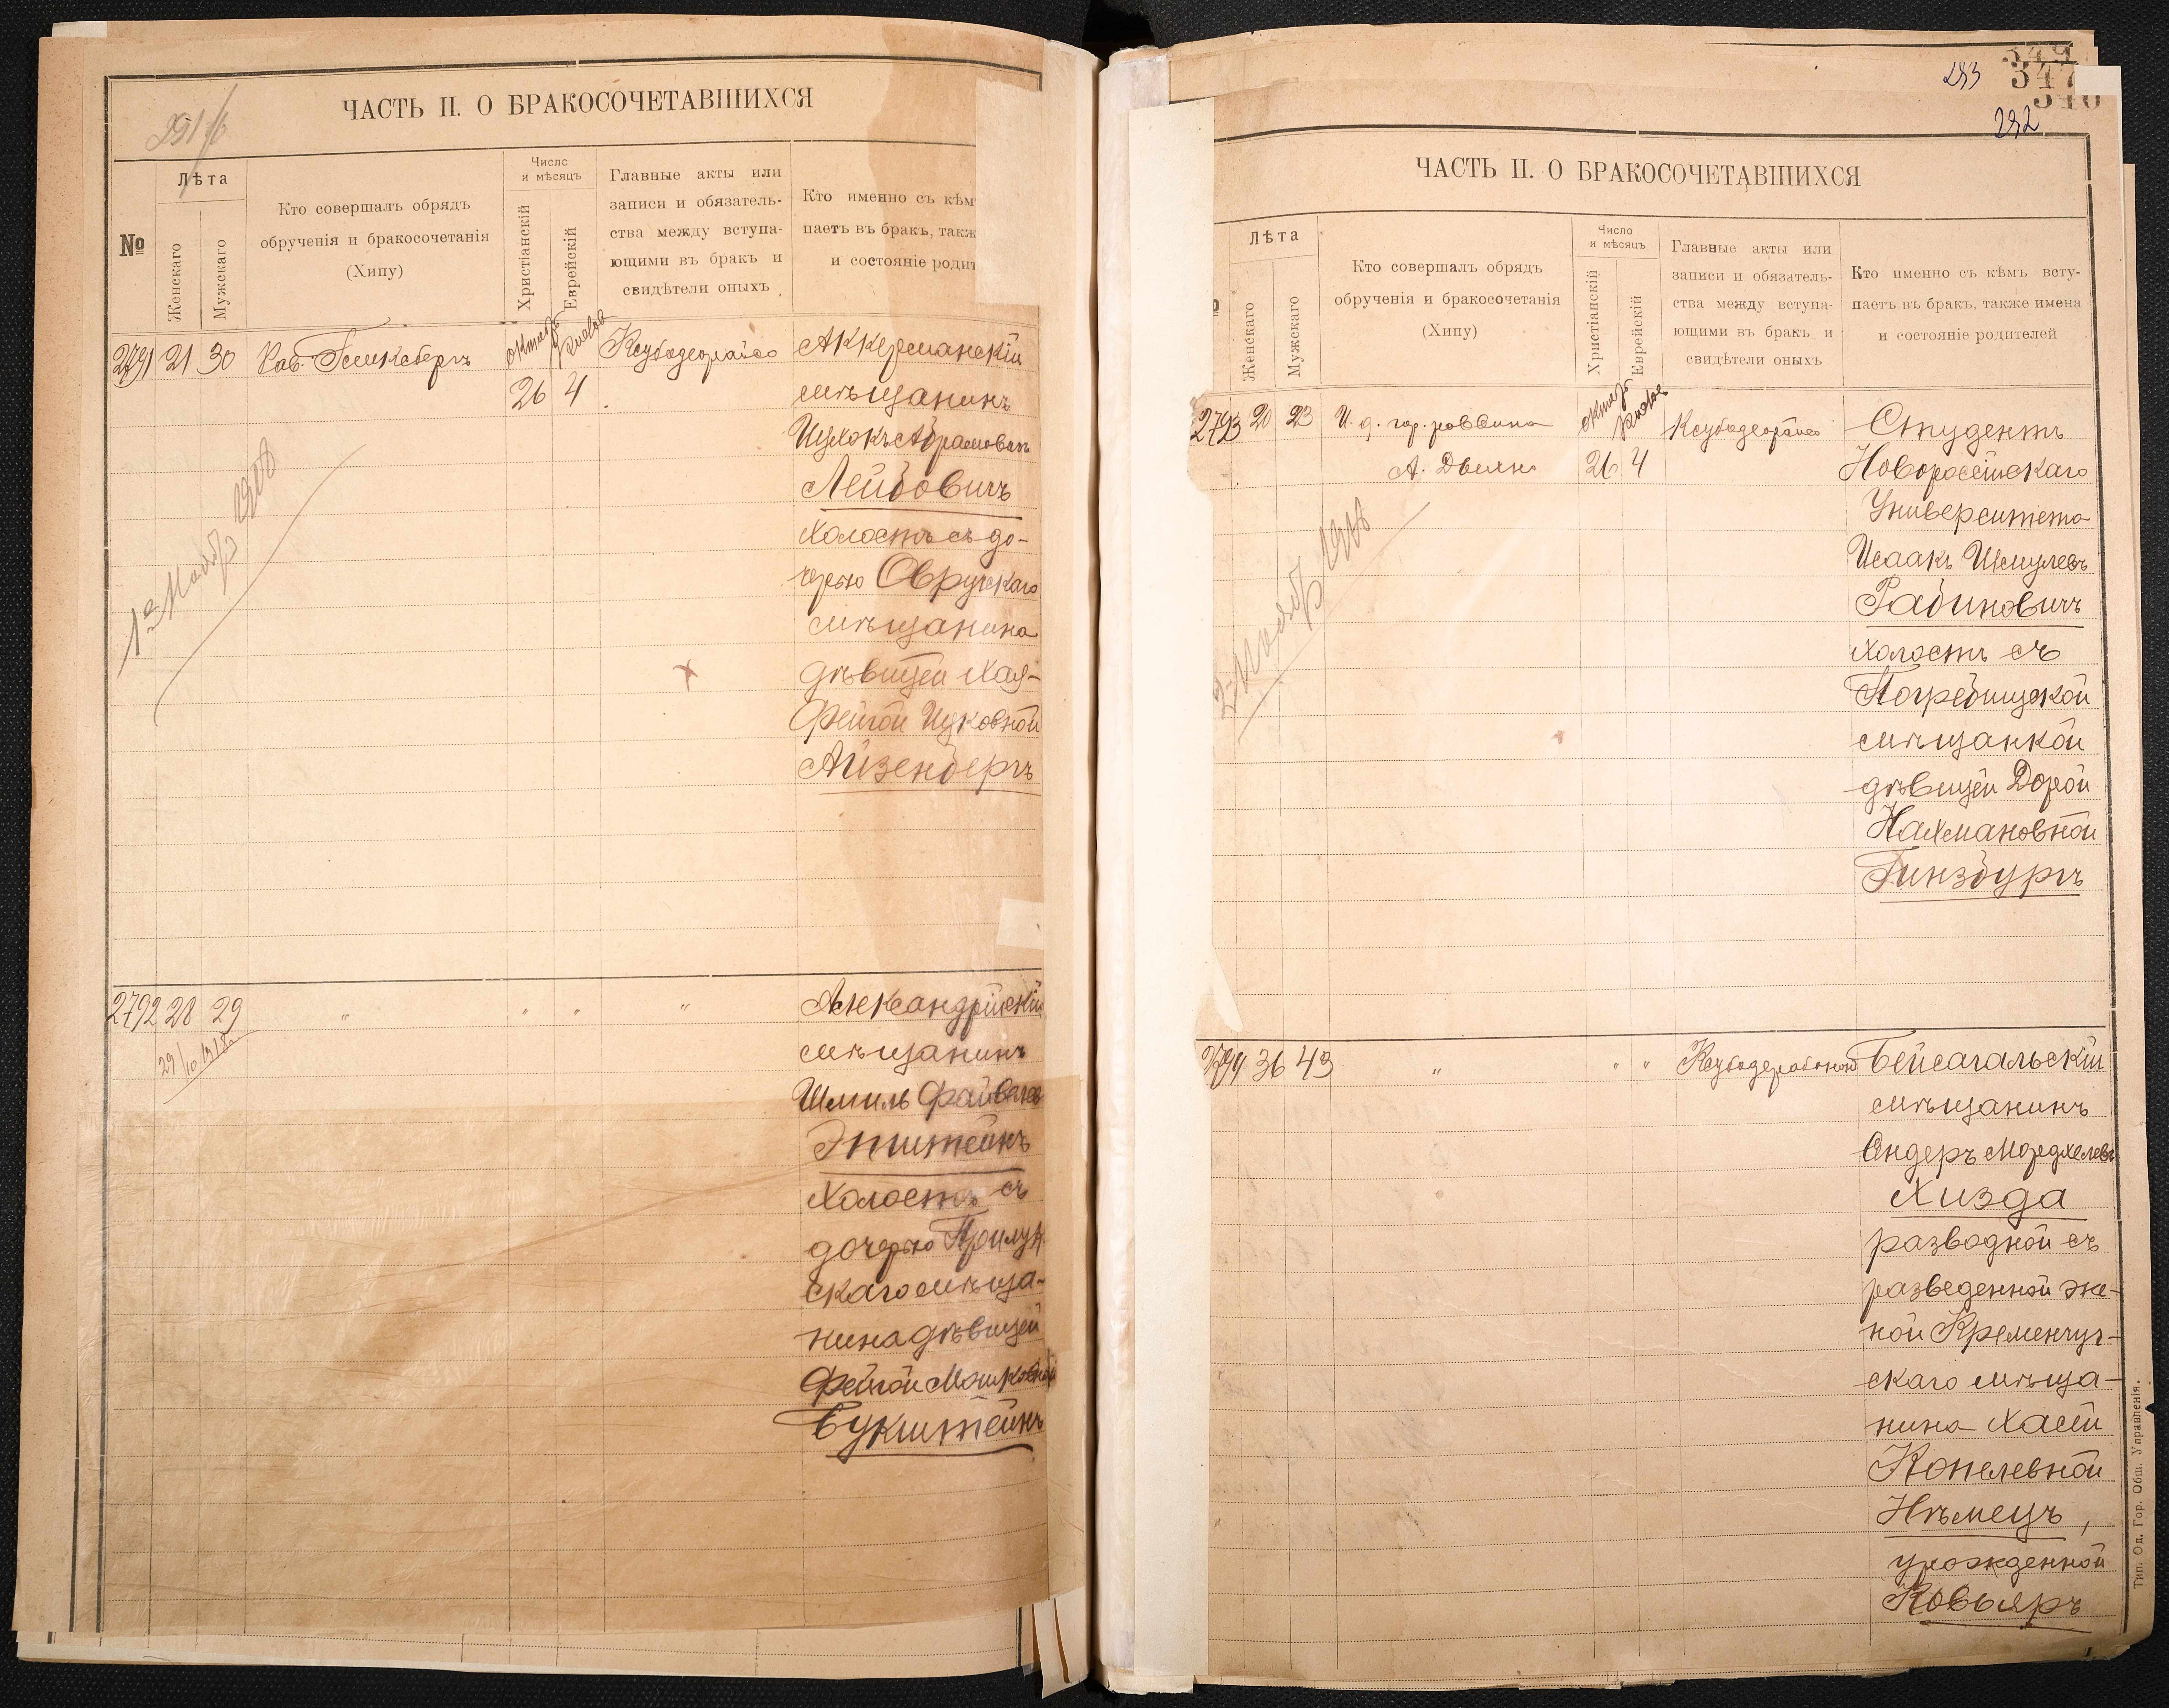 ЧАСТЬ II. О БРАКОСОЧЕТАВШИХСЯ
№
Лѣта
Женскаго
Мужскаго
Кто совершалъ обрядъ
обрученія и бракосочетанія
(Хипу)
Число
и мѣсяцъ
Христіанскій
Еврейскій
Главные акты или
записи и обязатель-
ства между вступа-
ющими въ бракъ и
свидѣтели оныхъ
Кто именно съ кѣм
паетъ въ бракъ, такж
и состояніе родит
2791 21 30
26 4
Аккерманскій
мѣщанинъ
Ицхокъ Абрамовичъ
Лейбовичъ
холостъ съ до-
черью Овручскаго
мѣщанина
дѣвицей Хая-
Фейгой Ицковной
Айзенбергъ
2792 28 29 " " " "
29/10 1915
Александрійскій
мѣщанинъ
Шмиль Файвелев
Эпштейнъ
холостъ съ
дочерью Прилук
скаго мѣща-
нина дѣвицей
Фейгой Мошковной
Букштейнъ
283
347
292
ЧАСТЬ II. О БРАКОСОЧЕТАВШИХСЯ
Лѣта
Женскаго
Мужскаго
Кто совершалъ обрядъ
обрученія и бракосочетанія
(Хипу)
Число
и мѣсяцъ
Христіанскій
Еврейскій
Главные акты или
записи и обязатель-
ства между вступа-
ющими въ бракъ и
свидѣтели оныхъ
Кто именно съ кѣмъ всту-
паетъ въ бракъ, также имена
и состояніе родителей
2793 20 23 И. д. гор. раввина
26 4
Студентъ
Новороссійскаго
Университета
Исаакъ Шмулевъ
Рабиновичъ
холостъ съ
Погребищской
мѣщанкой
дѣвицей Дорой
Нахмановной
Гинзбургъ
2794 36 43 " " "
Бейсагальскій
мѣщанинъ
Андеръ Мордхелевъ
Хизда
разводной съ
разведенной же-
ной Кременчуг-
скаго мѣща-
нина Хаей
Копелевной
Нѣмецъ,
урожденной
Тип. Од. Гор. Общ. Управленія.